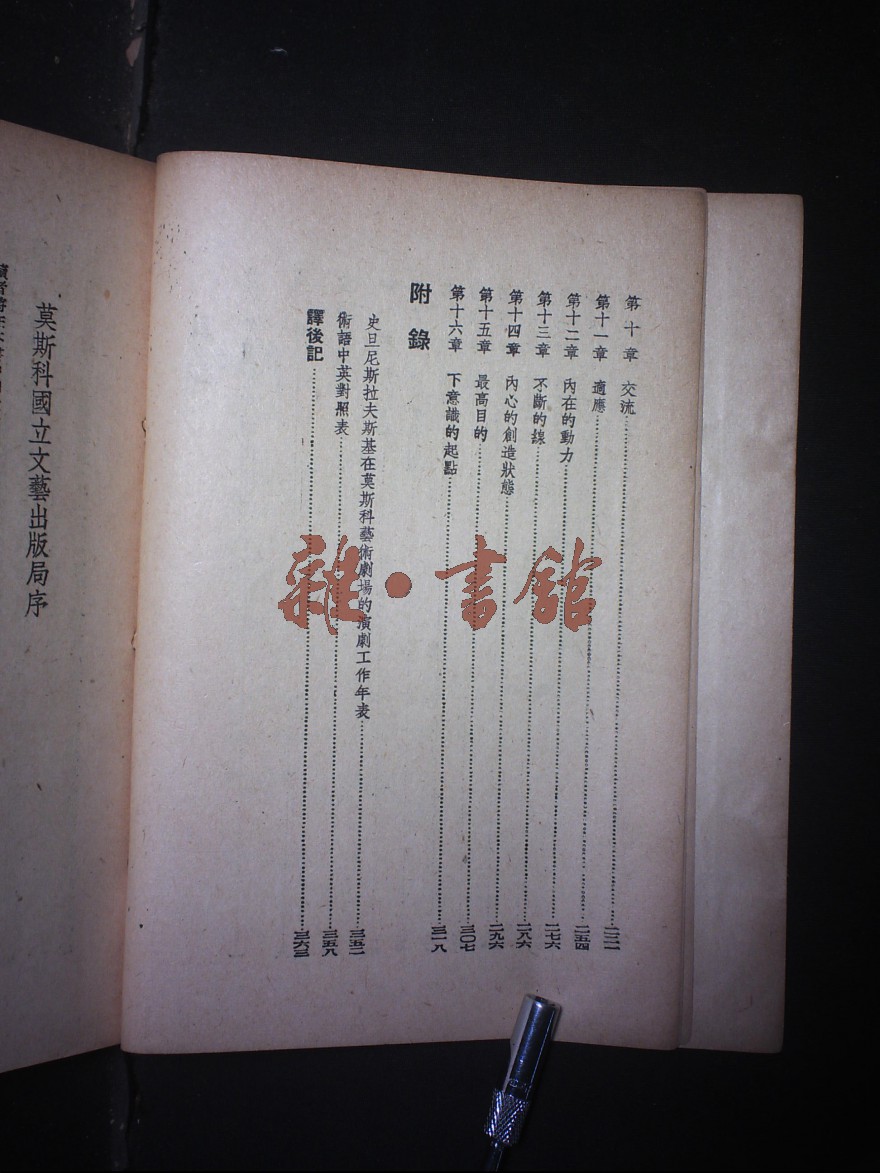 第十章 交流 二二一
第十一章 適應 二五四
第十二章 內在的動力 二七六
第十三章 不斷的線 二八六
第十四章 內心的創造狀態 二九六
第十五章 最高目的 三〇七
第十六章 下意識的起點 三一八
附錄
史旦尼斯拉夫斯基在莫斯科藝術劇場的演劇工作年表 三五二
術語中英對照表 三五八
譯後記 三六三
莫斯科國立文藝出版局序
雜·書館